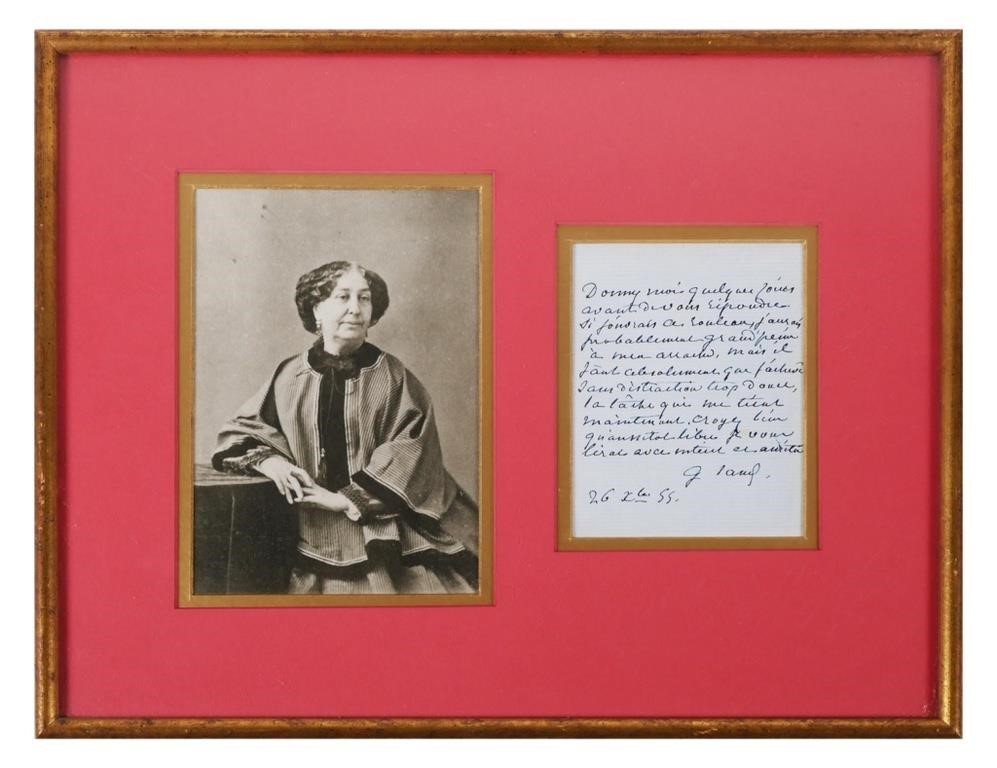 Donnez moi quelques jours
avant de vous répondre.
Si j'ouvrais ce rouleau, j'aurais
probablement grand'peine
à m'en arracher, mais il
faut absolument que j'achève
sans distraction trop douce,
la tâche qui me tient
maintenant. Croyez bien
qu'aussitot libre je vous
lirai avec intérêt et
G Sand.
26 Xbre 55.